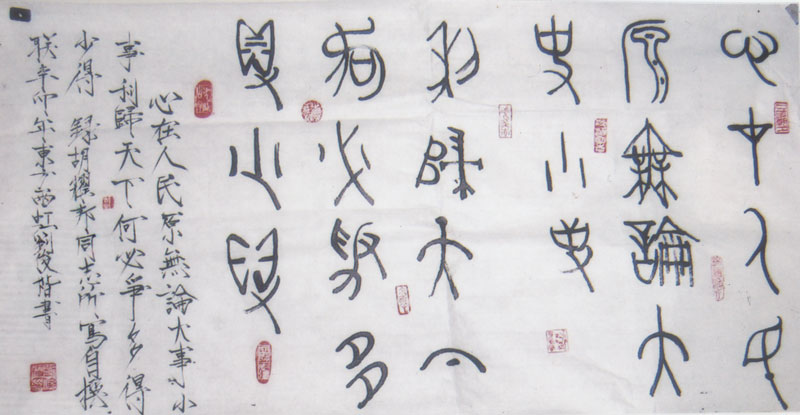 心在人民
原無論大
事小事
利歸天下
何必爭多
得少得
心在人民原無論大事小
事利歸天下何必爭多得
少得 錄胡耀邦同志所寫自撰
联辛卯年東方西虹劉階書